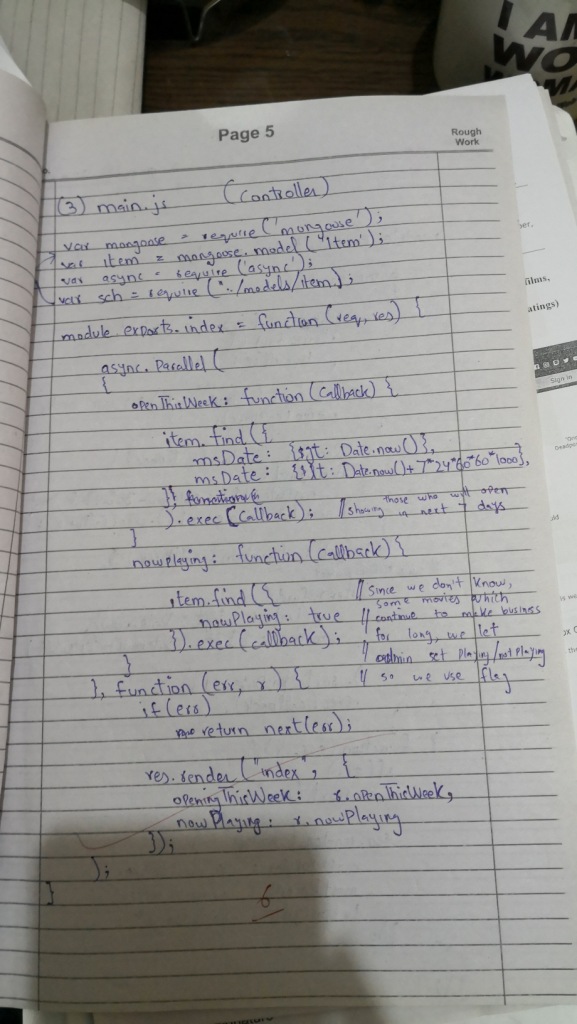 I AM
WO
Page 5
Rough
Work
(3) main.js (Controller)
var mongoose = require('mongoose');
var item = mongoose.model("Item');
var async = require('async');
var sch = require("../models/item);
module exports.index = function(req, res) {
async.Parallel(
{
openThisWeek: function(callback) {
item.find({
msDate: {$gt: Date.now()},
msDate: {$lt: Date.now()+ 7*24*60*60*1000},
}).exec(callback); //those who will open
showing in next 7 days
}
nowplaying: function(callback){
item.find({ // Since we don't know,
some movies which
nowPlaying: true // continue to make business
}).exec(callback); // for long, we let
} // admin set Playing/not Playing
}, function (err, r) { // so we use flag
if(err)
return next(err);
res.render("index", {
openingThisWeek: r.openThisWeek,
nowPlaying: r.nowPlaying
});
);
}
6
films,
atings)
Sign in